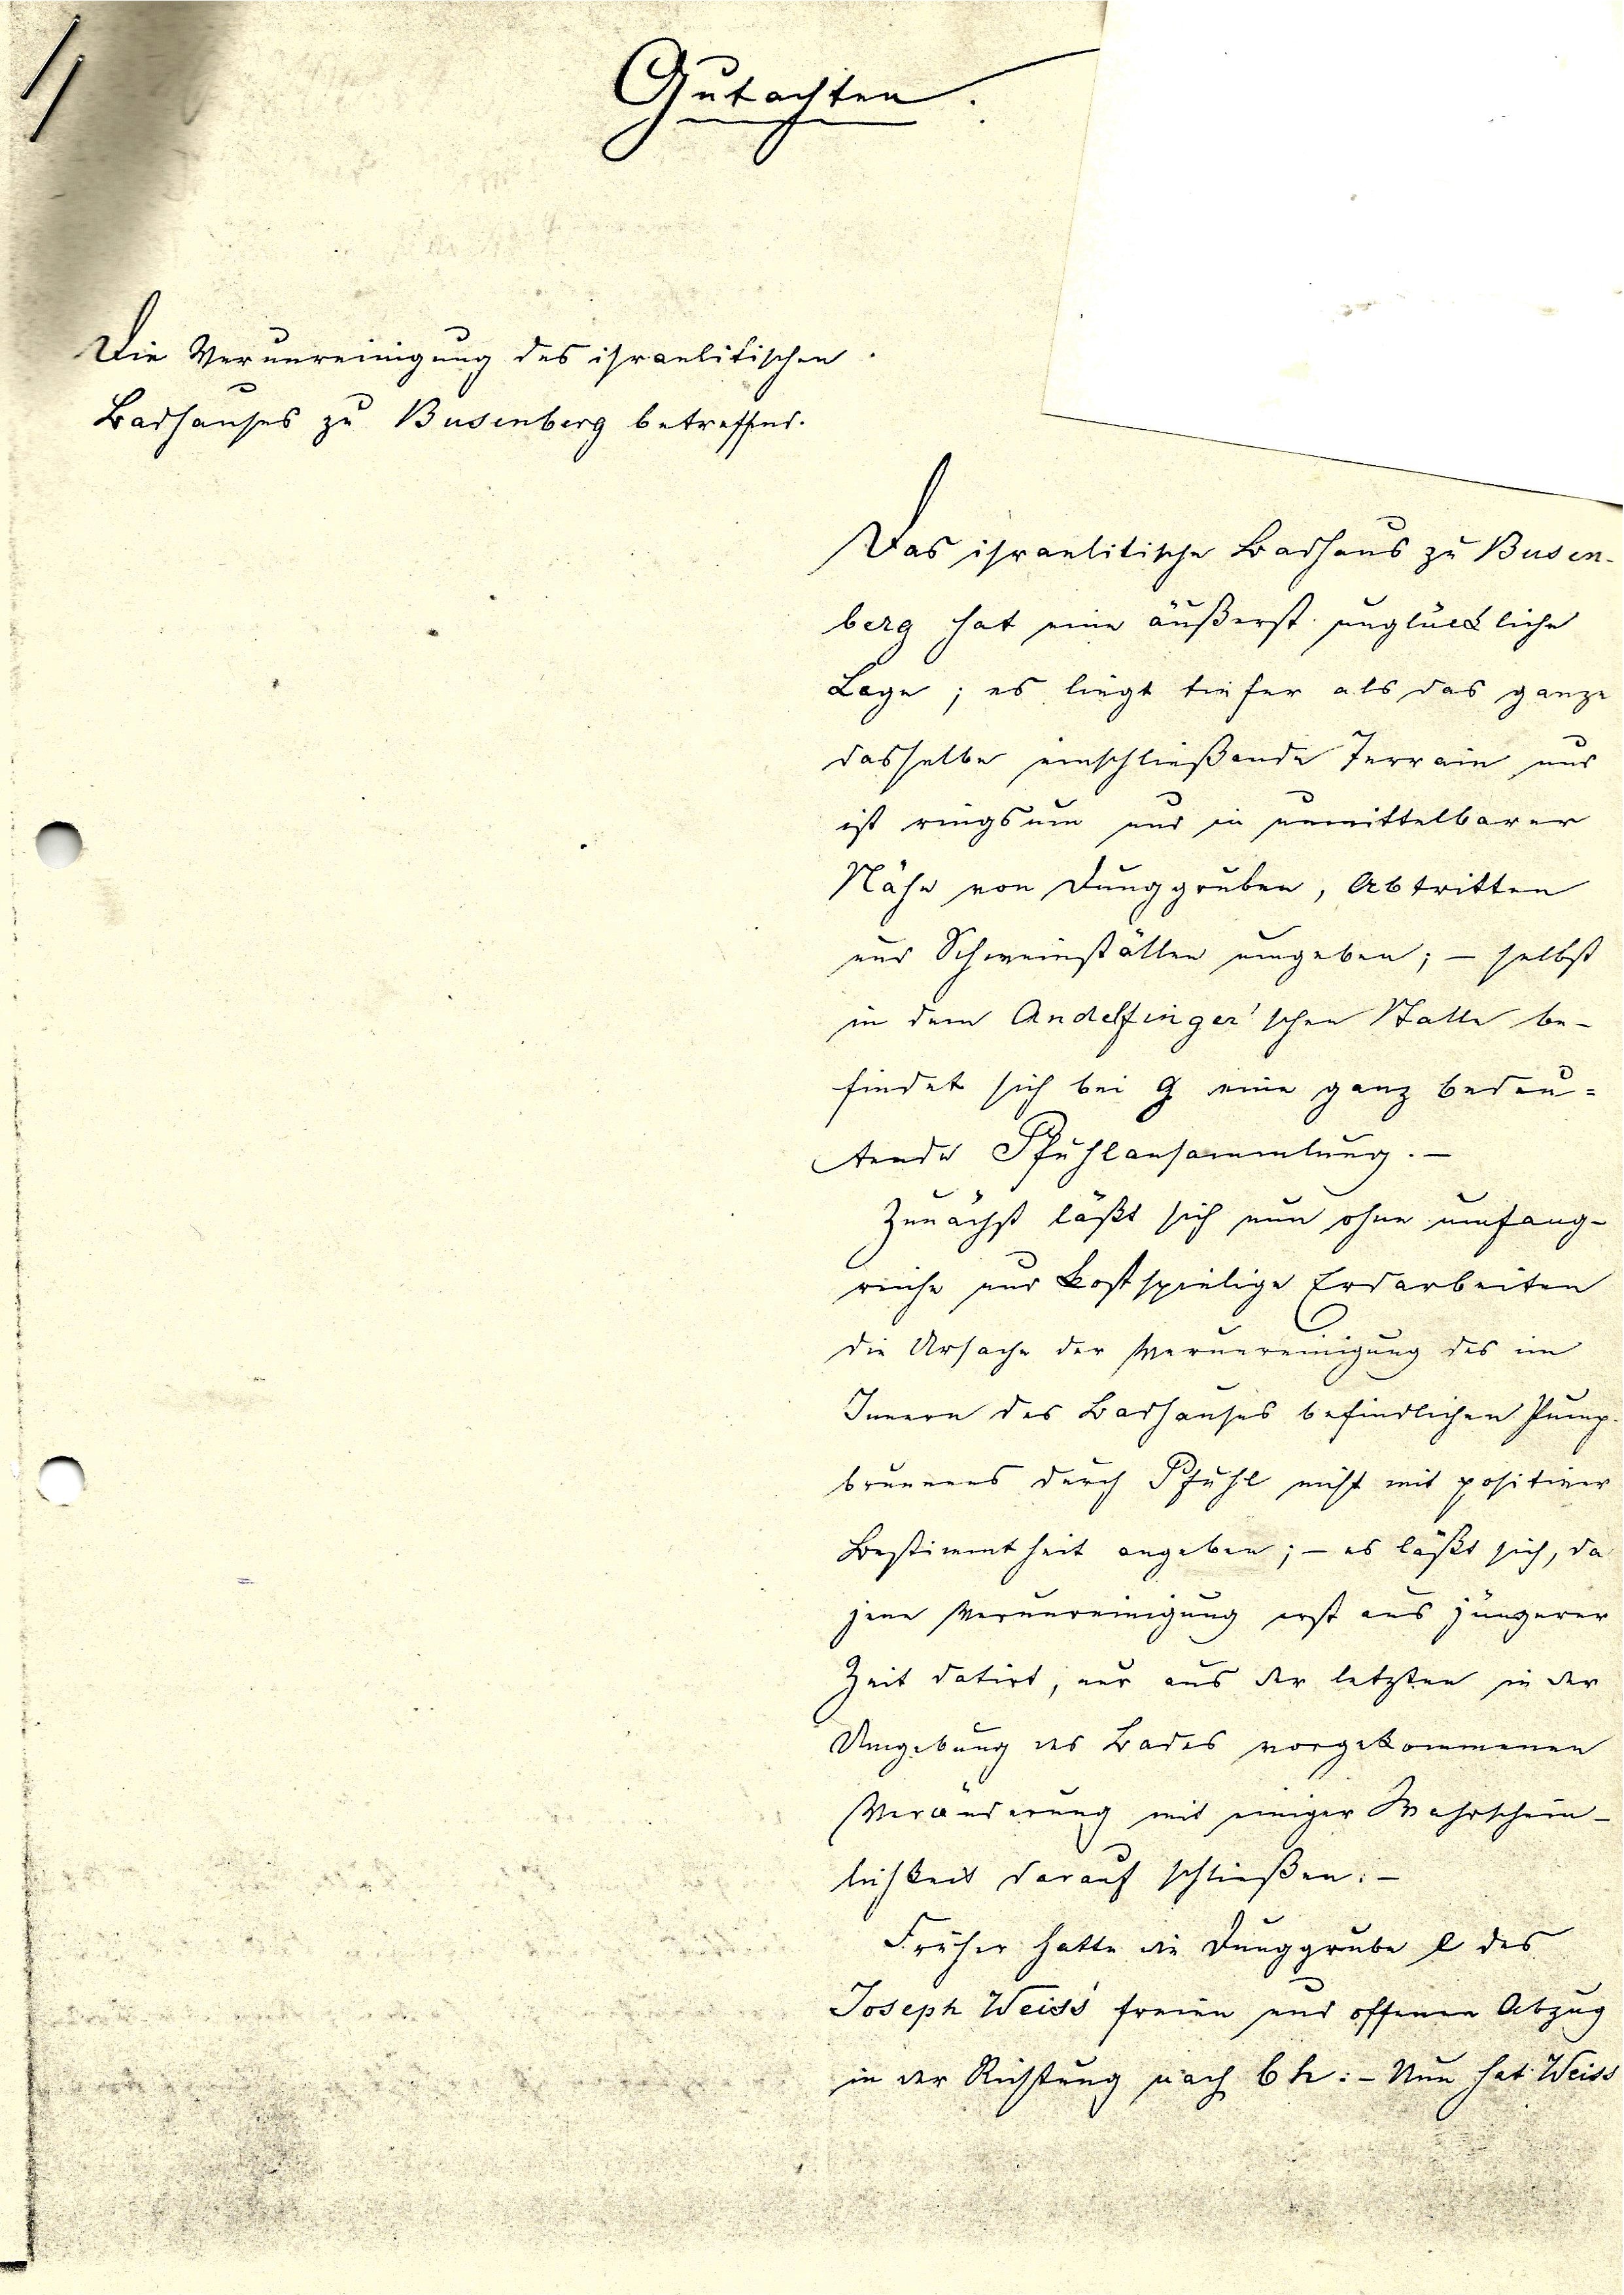 Gutachten.
Die Verunreinigung des israelitischen
Badhauses zu Busenberg betreffend.
Das israelitische Badhaus zu Busen-
berg hat eine äußerst unglückliche
Lage; es liegt tiefer als das ganze
dasselbe einschließende Terrain und
ist ringsum und in unmittelbarer
Nähe von Dunggruben, Abtritten
und Schweinställen umgeben; – selbst
in dem Andelfinger'schen Stalle be-
findet sich bei g eine ganz bedeu-
tende Pfuhlansammlung. –
Zunächst läßt sich nun ohne umfang-
reiche und kostspielige Erdarbeiten
die Ursache der Verunreinigung des im
Innern des Badhauses befindlichen Pump-
brunnens durch Pfuhl nicht mit positiver
Bestimmtheit angeben; – es läßt sich, da
jene Verunreinigung erst aus jüngerer
Zeit datirt, nur aus der letzten in der
Umgebung des Bades vorgekommenen
Veränderung mit einiger Wahrschein-
lichkeit darauf schließen: –
Früher hatte die Dunggrube l des
Joseph Weiss freien und offenen Abzug
in der Richtung nach b h: – Nun hat Weiss